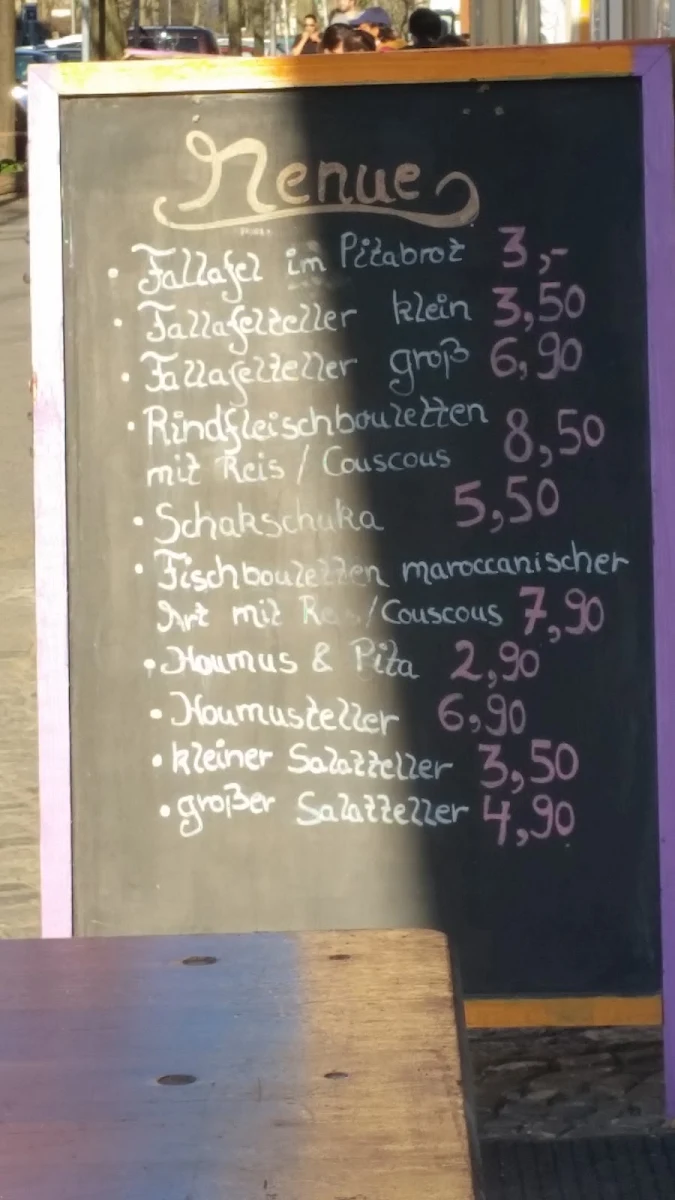 Menue
• Fallafel im Pitabrot 3,-
• Fallafelteller klein 3,50
• Fallafelteller groß 6,90
• Rindfleischbouletten 8,50
mit Reis / Couscous
• Schakschuka 5,50
• Fischbouletten maroccanischer
Art mit Reis /Couscous 7,90
• Houmus & Pita 2,90
• Houmusteller 6,90
• kleiner Salatteller 3,50
• großer Salatteller 4,90